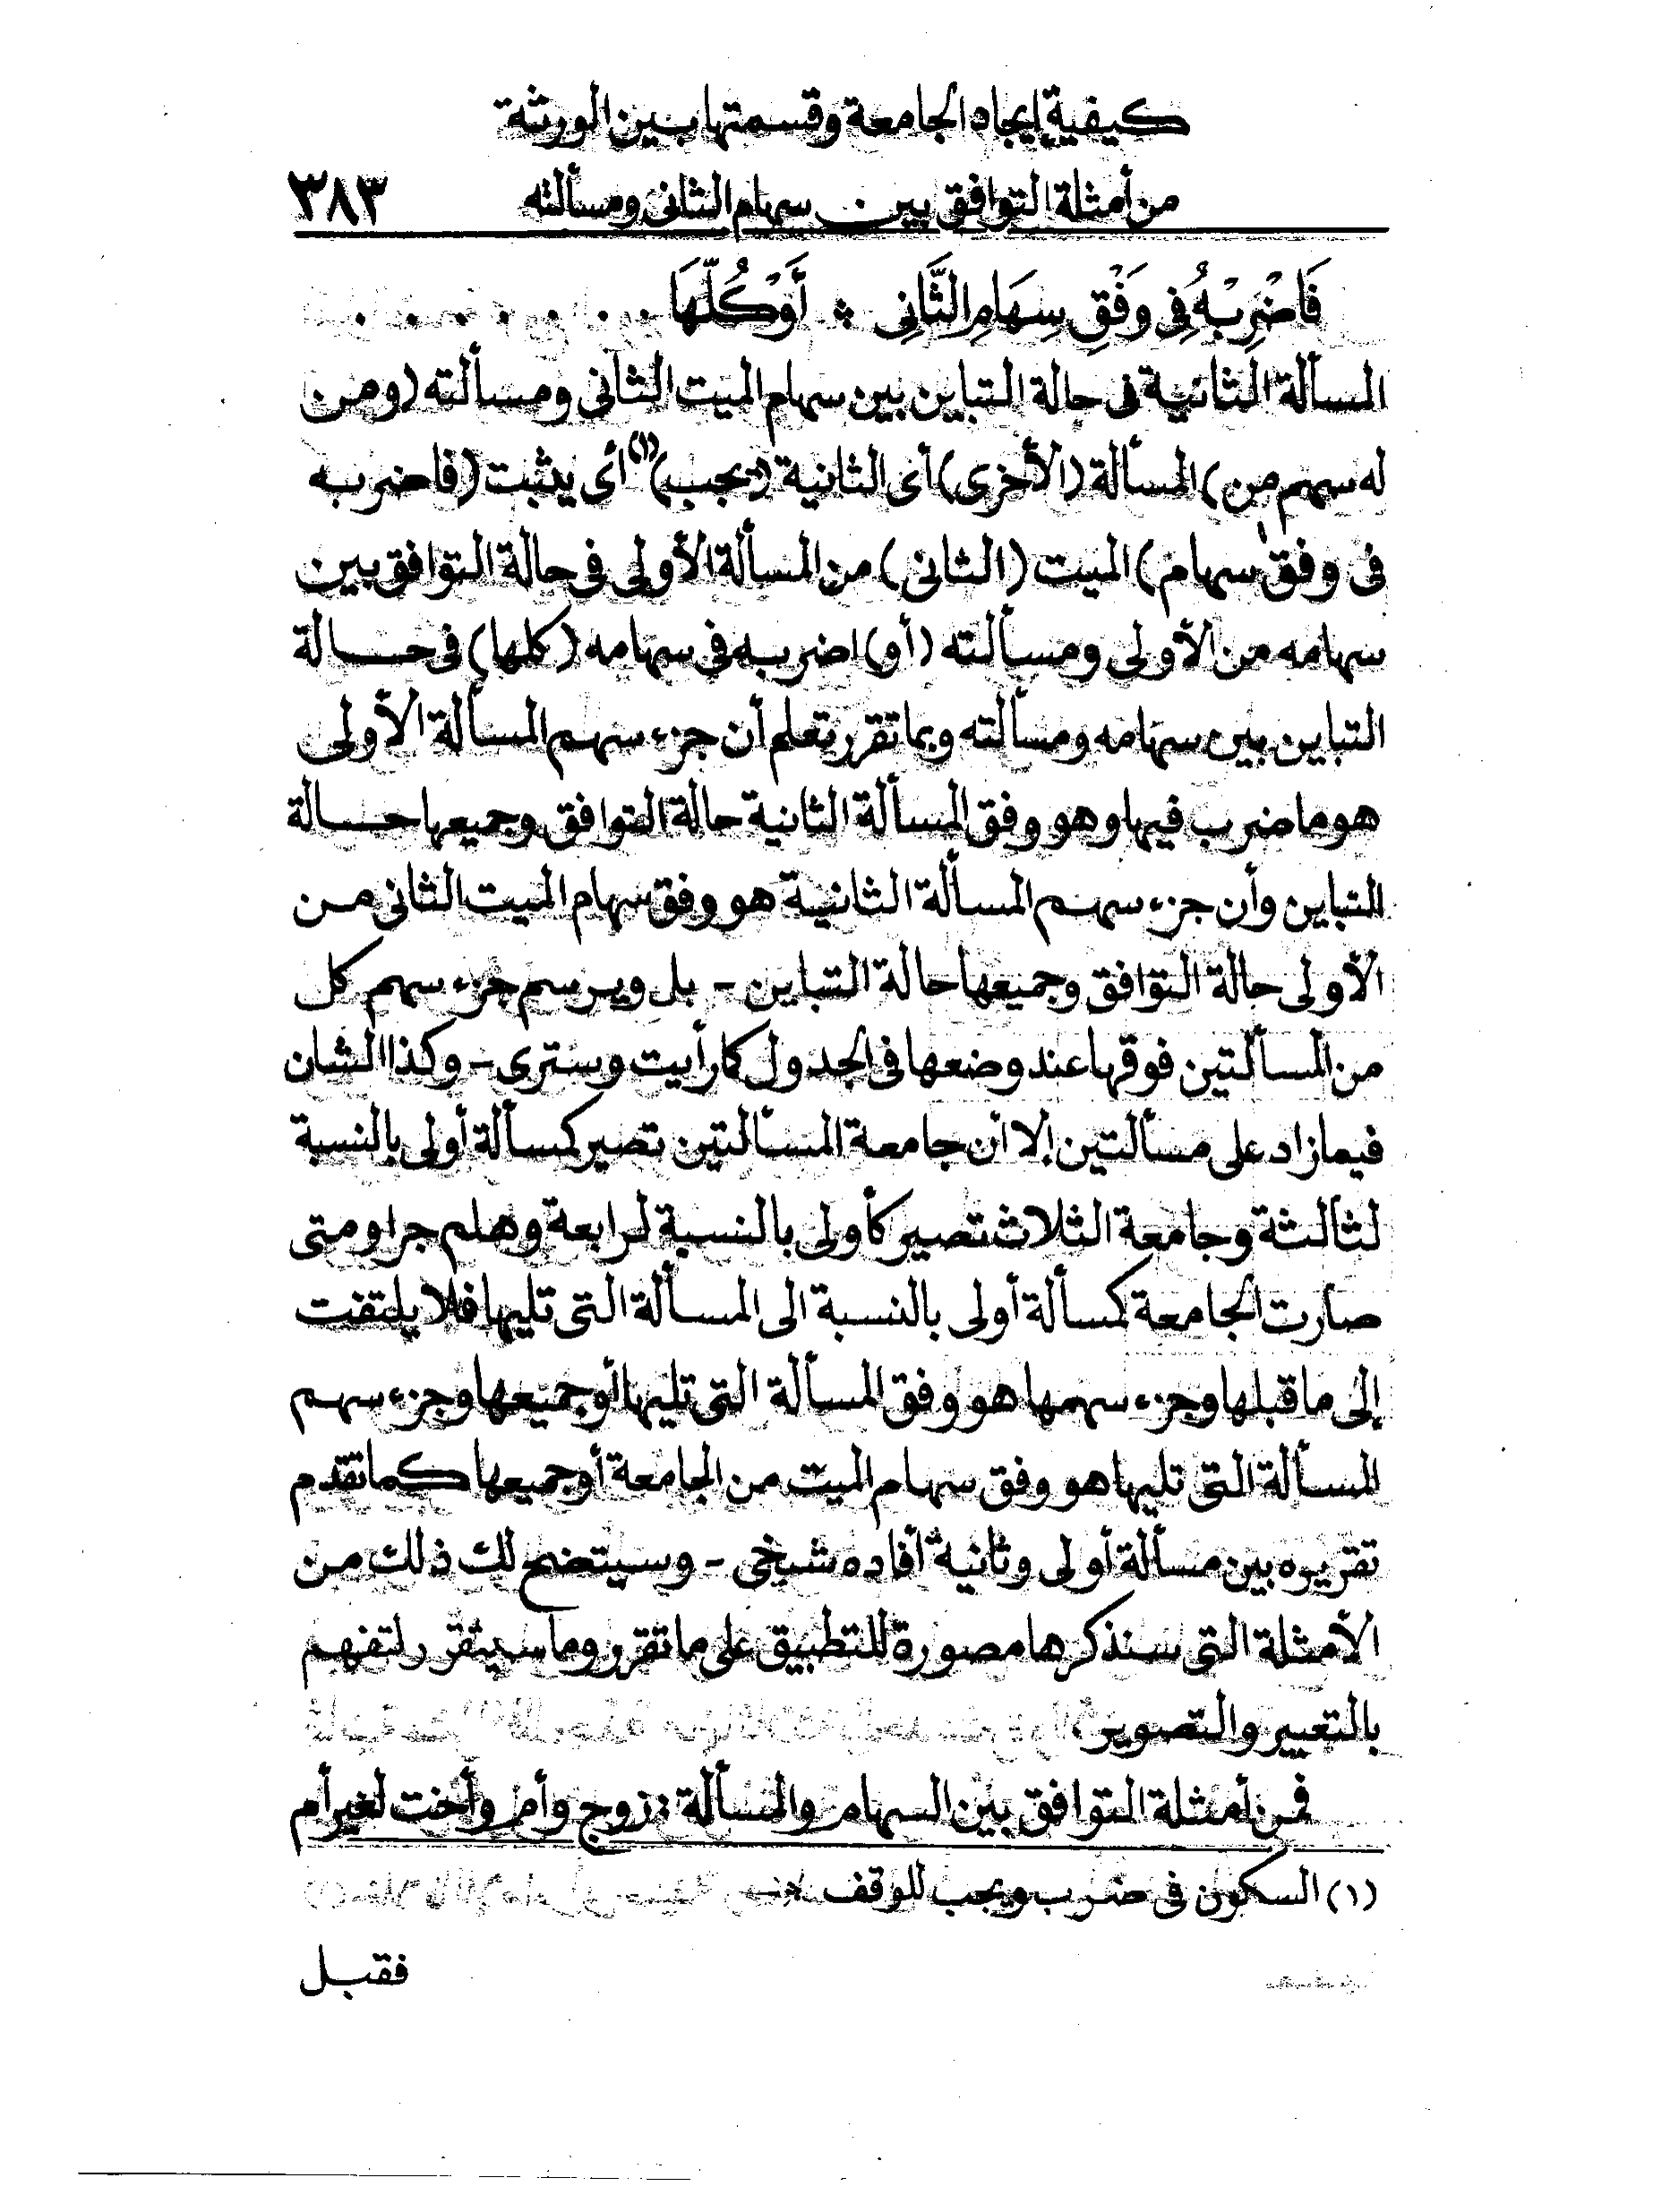 كيفية إيجاد الجامعة وقسمتها بين الورثة
من أمثلة التوافق بين سهام الثانى ومسألته ٣٨٣
فَاضْرِبْهُ فِى وَفْقِ سِهَامِ الثَّانِى * أَوْ كُلِّهَا . . . . . . . .
المسألة الثانية فى حالة التباين بين سهام الميت الثانى ومسألته (ومن
له سهم من) المسألة (الأخرى) أى الثانية (يجب)(١) أى يثبت (فاضربه
فى وفق سهام) الميت (الثانى) من المسألة الأولى فى حالة التوافق بين
سهامه من الأولى ومسألته (أو) اضربه فى سهامه (كلها) فى حالة
التباين بين سهامه ومسألته وبما تقرر تعلم أن جزء سهم المسألة الأولى
هو ما ضرب فيها وهو وفق المسألة الثانية حالة التوافق وجميعها حالة
التباين وأن جزء سهم المسألة الثانية هو وفق سهام الميت الثانى من
الأولى حالة التوافق وجميعها حالة التباين - بل ويرسم جزء سهم كل
من المسألتين فوقها عند وضعها فى الجدول كما رأيت وسترى - وكذا الشان
فيما زاد على مسألتين إلا أن جامعة المسألتين تصير كمسألة أولى بالنسبة
لثالثة وجامعة الثلاث تصير كأولى بالنسبة لرابعة وهلم جرا ومتى
صارت الجامعة كمسألة أولى بالنسبة الى المسألة التى تليها فلا يلتفت
إلى ما قبلها وجزء سهمها هو وفق المسألة التى تليها أو جميعها وجزء سهم
المسألة التى تليها هو وفق سهام الميت من الجامعة أو جميعها كما تقدم
تقريره بين مسألة أولى وثانية أفاده شيخى - وسيتضح لك ذلك من
الأمثلة التى سنذكرها مصورة للتطبيق على ما تقرر وما سيتقرر لتفهم
بالتعبير والتصوير
فمن أمثلة التوافق بين السهام والمسألة : زوج وأم وأخت لغير أم
(١) السكون فى ضرب ويجب للوقف
فقبل